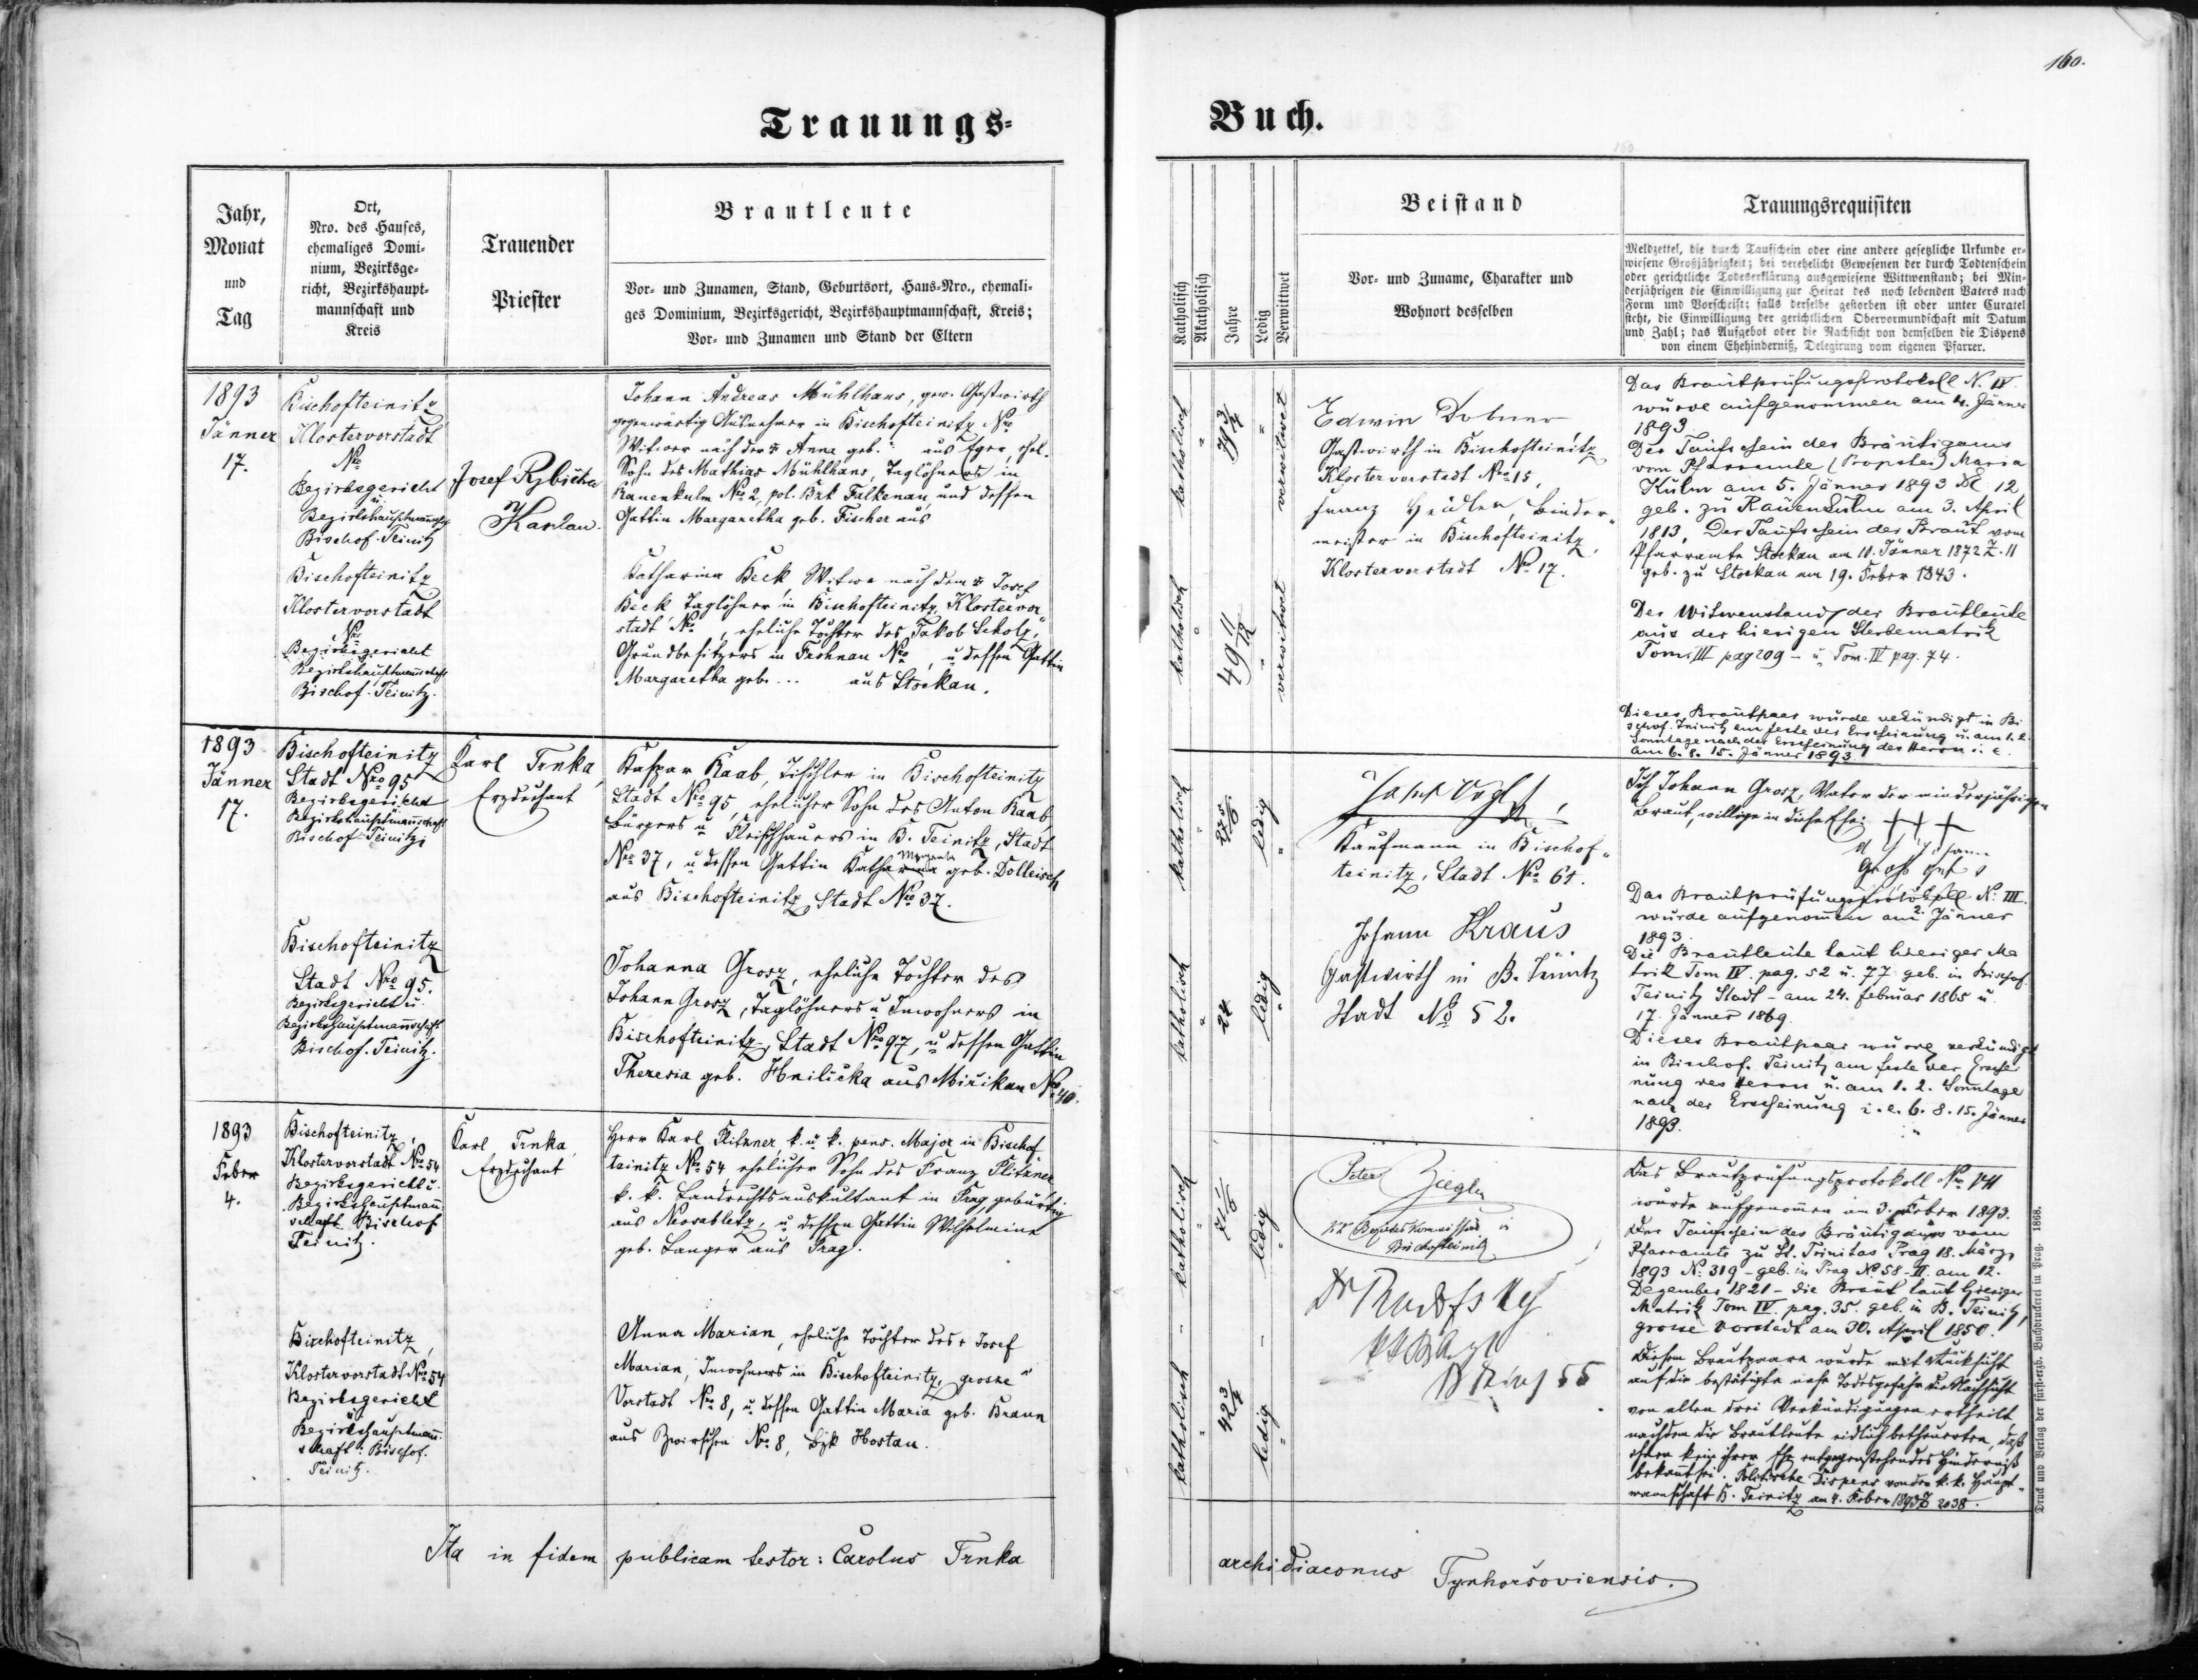 160.
Trauungs=
Buch.
Jahr,
Monat
und
Tag
Ort,
Nro. des Hauses,
ehemaliges Domi-
nium, Bezirksge-
richt, Bezirkshaupt-
mannschaft und
Kreis
Trauender
Priester
Brautleute
Vor- und Zunamen, Stand, Geburtsort, Haus-Nro., ehemali-
ges Dominium, Bezirksgericht, Bezirkshauptmannschaft, Kreis;
Vor- und Zunamen und Stand der Eltern
Katholisch
Akatholisch
Jahre
Ledig
Verwittwet
Beistand
Vor- und Zuname, Charakter und
Wohnort desselben
Trauungsrequisiten
Meldzettel, die durch Taufschein oder eine andere gesetzliche Urkunde er-
wiesene Großjährigkeit; bei verehelicht Gewesenen der durch Todtenschein
oder gerichtliche Todeserklärung ausgewiesene Wittwenstand; bei Min-
derjährigen die Einwilligung zur Heirat des noch lebenden Vaters nach
Form und Vorschrift; falls derselbe gestorben ist oder unter Curatel
steht, die Einwilligung der gerichtlichen Obervormundschaft mit Datum
und Zahl; das Aufgebot oder die Nachsicht von demselben die Dispens
von einem Ehehinderniß, Delegirung vom eigenen Pfarrer.
1893
Jänner
17.
Bischofteinitz
Klostervorstadt
Nro
Bezirksgericht
u.
Bezirkshauptmannschaft
Bischof-Teinitz
Josef Rybička
Kaplan.
Johann Andreas Mühlhans, gew. Gastwirth
gegenwärtig Ausnehmer in Bischofteinitz Nro
Witwer nach der † Anna geb. aus Eger, ehel.
Sohn des Mathias Mühlhans, Taglöhners in
Rauenkulm Nro 2, pol. Bzk Falkenau, und dessen
Gattin Margaretha geb. Fischer aus
Bischofteinitz
Klostervorstadt
Nro
Bezirksgericht
Bezirkshauptmannschaft
Bischof-Teinitz.
Katharina Beck, Witwe nach dem † Josef
Beck Taglöhner in Bischofteinitz, Klostervor-
stadt Nro , eheliche Tochter des Jakob Scholz,
Grundbesitzers in Nro , u. dessen Gattin
Margaretha geb. ... aus Stockau.
katholisch
"
79 3/4
verwitwet
katholisch
"
49 11/12
verwitwet
Edwin Dobner
Gastwirth in Bischofteinitz
Klostervorstadt Nro 15,
Franz Binder-
meister in Bischofteinitz,
Klostervorstadt No 17.
Das Brautprüfungsprotokoll N. IV.
wurde aufgenommen am 4. Jänner
1893.
Der Taufschein des Bräutigams
vom Pfarramte (Propstei) Maria
Kulm am 5. Jänner 1893 No 12
geb. zu Rauenkulm am 3. April
1813, Der Taufschein der Braut vom
Pfarramte Stockau am 10. Jänner 1872 Z. 11
geb. zu Stockau am 19. Feber 1843.
Der Witwenstand der Brautleute
aus der hierigen Sterbematrik
Tom. III pag 209 – u. Tom. IV pag. 74.
Dieses Brautpaar wurde verkündigt in Bi-
schof-Teinitz am Feste der Erscheinung u. am 1. 2.
Sonntage nach der Erscheinung des Herrn i. e.
am 6. 8. 15. Jänner 1893.
1893
Jänner
17.
Bischofteinitz
Stadt Nro 95
Bezirksgericht
Bezirkshauptmannschaft
Bischof-Teinitz
Karl Trnka,
Erzdechant
Kaspar Raab, Tischler in Bischofteinitz
Stadt Nro 95, ehelicher Sohn des Anton Raab,
Bürgers u. Fleischhauers in B. Teinitz, Stadt
Nro 37, u. dessen Gattin Katharina geb. Dolleisch
aus Bischofteinitz, Stadt No 37.
Bischofteinitz
Stadt Nro 95.
Bezirksgericht u.
Bezirkshauptmannschaft
Bischof-Teinitz.
Johanna Grosz, eheliche Tochter des
Johann Grosz, Taglöhners u. Inwohners in
Bischofteinitz, Stadt Nro 97, u. dessen Gattin
Theresia geb. Hnilička aus Miřikau Nro 40.
katholisch
"
ledig
"
katholisch
"
24
ledig
"
Kaufmann in Bischof-
teinitz, Stadt No 61.
Johann Kraus
Gastwirth in B. Teinitz
Stadt No 52.
Ich Johann Grosz, Vater der minderjährigen
Braut, willige in diese Ehe: +++
Johann
Groß
Das Brautprüfungsprotokoll N. III.
wurde aufgenommen am 2. Jänner
1893.
Die Brautleute laut hieriger Ma-
trik Tom IV. pag. 52 u. 77 geb. in Bischof-
Teinitz Stadt – am 24. Februar 1865 u.
17. Jänner 1869.
Dieses Brautpaar wurde verkündigt
in Bischof. Teinitz am Feste der Erschei-
nung des Herrn u. am 1. 2. Sonntage
nach der Erscheinung i. e. 6. 8. 15. Jänner
1893.
1893
Feber
4.
Bischofteinitz,
Klostervorstadt No 54
Bezirksgericht u.
Bezirkshauptmann-
schaft Bischof
Teinitz.
Karl Trnka,
Erzdechant
Herr Karl Plitzner, k. u. k. pens. Major in Bischof-
teinitz No 54 ehelicher Sohn des Franz Plitzner
k. k. Landrechtsauskultant in Prag gebürtig
aus Neosablitz, u. dessen Gattin Wilhelmine
geb. Langer aus Prag.
Bischofteinitz,
Klostervorstadt No 54
Bezirksgericht
u.
Bezirkshauptmann-
schaft: Bischof-
Teinitz.
Anna Marian, eheliche Tochter des † Josef
Marian, Inwohners in Bischofteinitz, grosse
Vorstadt No 8, u. dessen Gattin Maria geb. Braun
aus Zwirschen No 8, Bzk Hostau.
katholisch
"
71
ledig
"
katholisch
"
42 3/4
ledig
"
Peter Ziegler
kk Bezirks Kommissär in
Bischofteinitz
Das Brautprüfungsprotokoll No VII
wurde aufgenommen am 3. Feber 1893.
Der Taufschein des Bräutigams vom
Pfarramte zu St. Trinitas Prag 18. März
1893 No 319 – geb. in Prag No 58-II. am 12.
Dezember 1821 – die Braut laut hieriger
Matrik Tom IV. pag. 35. geb. in B. Teinitz,
grosse Vorstadt am 30. April 1850.
Diesem Brautpaare wurde mit Rücksicht
auf die bestätigte nahe Todesgefahr die Nachsicht
von allen drei Verkündigungen ertheilt,
nachdem die Brautleute eidlich betheuerten, daß
ihnen kein ihrer Ehe entgegenstehendes Hinderniß
bekannt sei. Politische Dispens von der k. k. Haupt-
mannschaft B. Teinitz am 4. Feber 1893 Z 2038.
Ita in fidem publicam testor: Carolus Trnka
archidiaconus Tynhoršoviensis.
Druck und Verlag der fürst-erzb. Buchdruckerei in Prag. 1868.